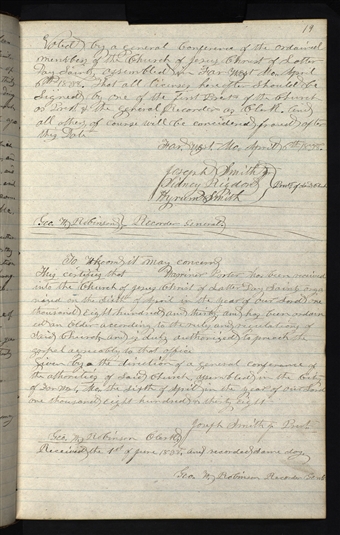 19
Voted by a general Conference of the ordained
members of the Church of Jesus Christ of Latter
Day Saints, assembled in Far West Mo. April
6th 1838. That all licenses hereafter should be
signed by one of the First Pres of the Church
or Prest & the general Recorder as Clerk, and
all others of course will be considered after
this Date
Far West Mo, April 6th 1838.
Joseph Smith Jr
Sidney Rigdon
Hyrum Smith
Geo. W. Robinson, Recorder General
To Whom it may concern
This certifies that Warriner Porter has been received
into the Church of Jesus Christ of Latter Day Saints, or
nized on the sixth of April in the year of our Lord One
thousand eight hundred and thirty, and has been ordain
ed an Elder according to the rules and regulations of
said Church and is duly authorized to preach the
gospel agreeably to that office
Given by the direction of a general conference of
the authorities of said Church assembled in the City
of Far West, Mo. the sixth of April in the year of our Lord
one thousand eight hundred and thirty eight
Joseph Smith Jr Prest
Geo. W. Robinson Clerk
Received the 1st of June 1838, and recorded same day
Geo. W. Robinson Recorder